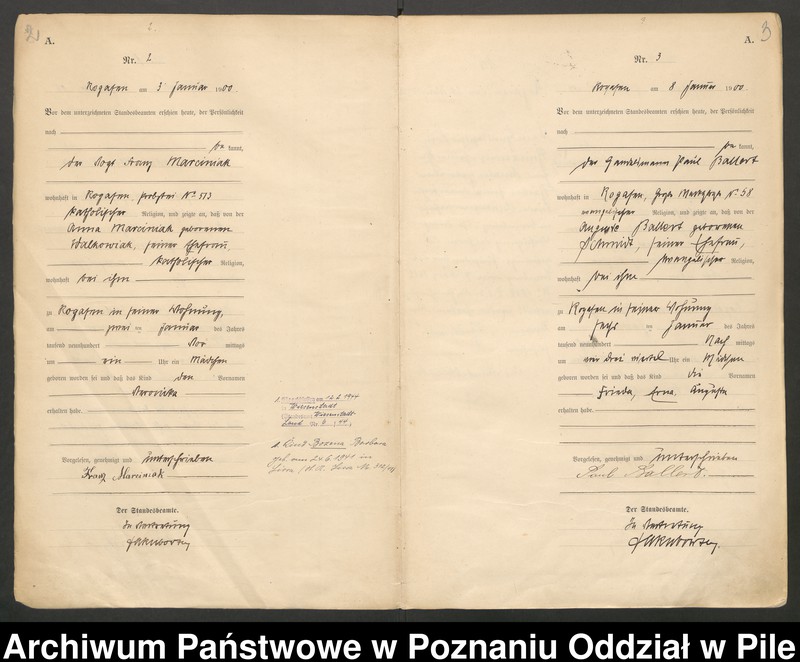 2
A.
Nr. 2
Rogasen am 3 Januar 1900
Vor dem unterzeichneten Standesbeamten erschien heute, der Persönlichkeit
nach
be kannt,
der Vogt Franz Marciniak
wohnhaft in Rogasen, Probstei No 513
katholischer Religion, und zeigte an, daß von der
Anna Marciniak geborenen
Walkowiak, seiner Ehefrau
katholischer Religion,
wohnhaft bei ihm
zu Rogasen in seiner Wohnung,
am zwei ten Januar des Jahres
tausend neunhundert Vor mittags
um ein Uhr ein Mädchen
geboren worden sei und daß das Kind den Vornamen
Veronika
erhalten habe.
Vorgelesen, genehmigt und unterschrieben
Franz Marciniak
Der Standesbeamte.
In Vertretung
Jakubowsky
am 12.2.1944
1. Kind Bozena Barbara
geb. am 24.6.1941 in
3
A.
Nr. 3
Rogasen am 8 Januar 1900
Vor dem unterzeichneten Standesbeamten erschien heute, der Persönlichkeit
nach
be kannt,
der Handelsmann Paul Ballert
wohnhaft in Rogasen, No 58
evangelischer Religion, und zeigte an, daß von der
Auguste Ballert geborenen
Schmidt, seiner Ehefrau,
evangelischer Religion,
wohnhaft bei ihm
zu Rogasen in seiner Wohnung
am sechs ten Januar des Jahres
tausend neunhundert Nach mittags
um drei viertel Uhr ein Mädchen
geboren worden sei und daß das Kind die Vornamen
Frieda, Erna, Auguste
erhalten habe.
Vorgelesen, genehmigt und unterschrieben
Paul Ballert.
Der Standesbeamte.
In Vertretung
Jakubowsky.
Archiwum Państwowe w Poznaniu Oddział w Pile